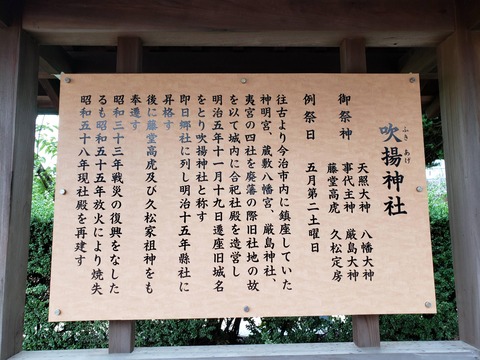 吹揚神社
ふき あげ
御祭神
天照大神 八幡大神
事代主神 厳島大神
藤堂高虎 久松定房
例祭日 五月第二土曜日
往古より今治市内に鎮座していた
神明宮、蔵敷八幡宮、厳島神社、
夷宮の四社を廃藩の際旧社地の故
を以て城内に合祀社殿を造営し
明治五年十一月十九日遷座旧城名
をとり吹揚神社と称す
即日郷社に列し明治十五年県社に
昇格す
後に藤堂高虎及び久松家祖神をも
奉遷す
昭和三十三年戦災の復興をなした
るも昭和五十五年放火により焼失
昭和五十八年現社殿を再建す